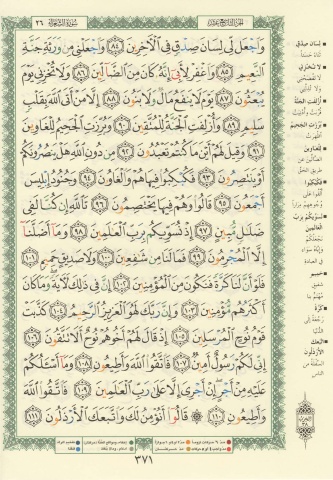 سُورَةُ الشُّعَرَاءِ ٢٦
الجزء التاسع عشر
وَاجْعَل لِّي لِسَانَ صِدْقٍ فِي الْآخِرِينَ ٨٤ وَاجْعَلْنِي مِن وَرَثَةِ جَنَّةِ
النَّعِيمِ ٨٥ وَاغْفِرْ لِأَبِي إِنَّهُ كَانَ مِنَ الضَّالِّينَ ٨٦ وَلَا تُخْزِنِي يَوْمَ
يُبْعَثُونَ ٨٧ يَوْمَ لَا يَنفَعُ مَالٌ وَلَا بَنُونَ ٨٨ إِلَّا مَنْ أَتَى اللَّهَ بِقَلْبٍ
سَلِيمٍ ٨٩ وَأُزْلِفَتِ الْجَنَّةُ لِلْمُتَّقِينَ ٩٠ وَبُرِّزَتِ الْجَحِيمُ لِلْغَاوِينَ
٩١ وَقِيلَ لَهُمْ أَيْنَ مَا كُنتُمْ تَعْبُدُونَ ٩٢ مِن دُونِ اللَّهِ هَلْ يَنصُرُونَكُمْ
أَوْ يَنتَصِرُونَ ٩٣ فَكُبْكِبُوا فِيهَا هُمْ وَالْغَاوُونَ ٩٤ وَجُنُودُ إِبْلِيسَ
أَجْمَعُونَ ٩٥ قَالُوا وَهُمْ فِيهَا يَخْتَصِمُونَ ٩٦ تَاللَّهِ إِن كُنَّا لَفِي
ضَلَالٍ مُّبِينٍ ٩٧ إِذْ نُسَوِّيكُم بِرَبِّ الْعَالَمِينَ ٩٨ وَمَا أَضَلَّنَا
إِلَّا الْمُجْرِمُونَ ٩٩ فَمَا لَنَا مِن شَافِعِينَ ١٠٠ وَلَا صَدِيقٍ حَمِيمٍ ١٠١
فَلَوْ أَنَّ لَنَا كَرَّةً فَنَكُونَ مِنَ الْمُؤْمِنِينَ ١٠٢ إِنَّ فِي ذَٰلِكَ لَآيَةً وَمَا كَانَ
أَكْثَرُهُم مُّؤْمِنِينَ ١٠٣ وَإِنَّ رَبَّكَ لَهُوَ الْعَزِيزُ الرَّحِيمُ ١٠٤ كَذَّبَتْ
قَوْمُ نُوحٍ الْمُرْسَلِينَ ١٠٥ إِذْ قَالَ لَهُمْ أَخُوهُمْ نُوحٌ أَلَا تَتَّقُونَ ١٠٦
إِنِّي لَكُمْ رَسُولٌ أَمِينٌ ١٠٧ فَاتَّقُوا اللَّهَ وَأَطِيعُونِ ١٠٨ وَمَا أَسْأَلُكُمْ
عَلَيْهِ مِنْ أَجْرٍ إِنْ أَجْرِيَ إِلَّا عَلَىٰ رَبِّ الْعَالَمِينَ ١٠٩ فَاتَّقُوا اللَّهَ
وَأَطِيعُونِ ١١٠ قَالُوا أَنُؤْمِنُ لَكَ وَاتَّبَعَكَ الْأَرْذَلُونَ ١١١
لسان صدق
لا تخزني
أزلفت الجنّة
برّزت الجحيم
للغاوين
فكبكبوا
نسويكم برب
العالمين
حميم
كرّة
اتبعك
الأرذلون
٣٧١